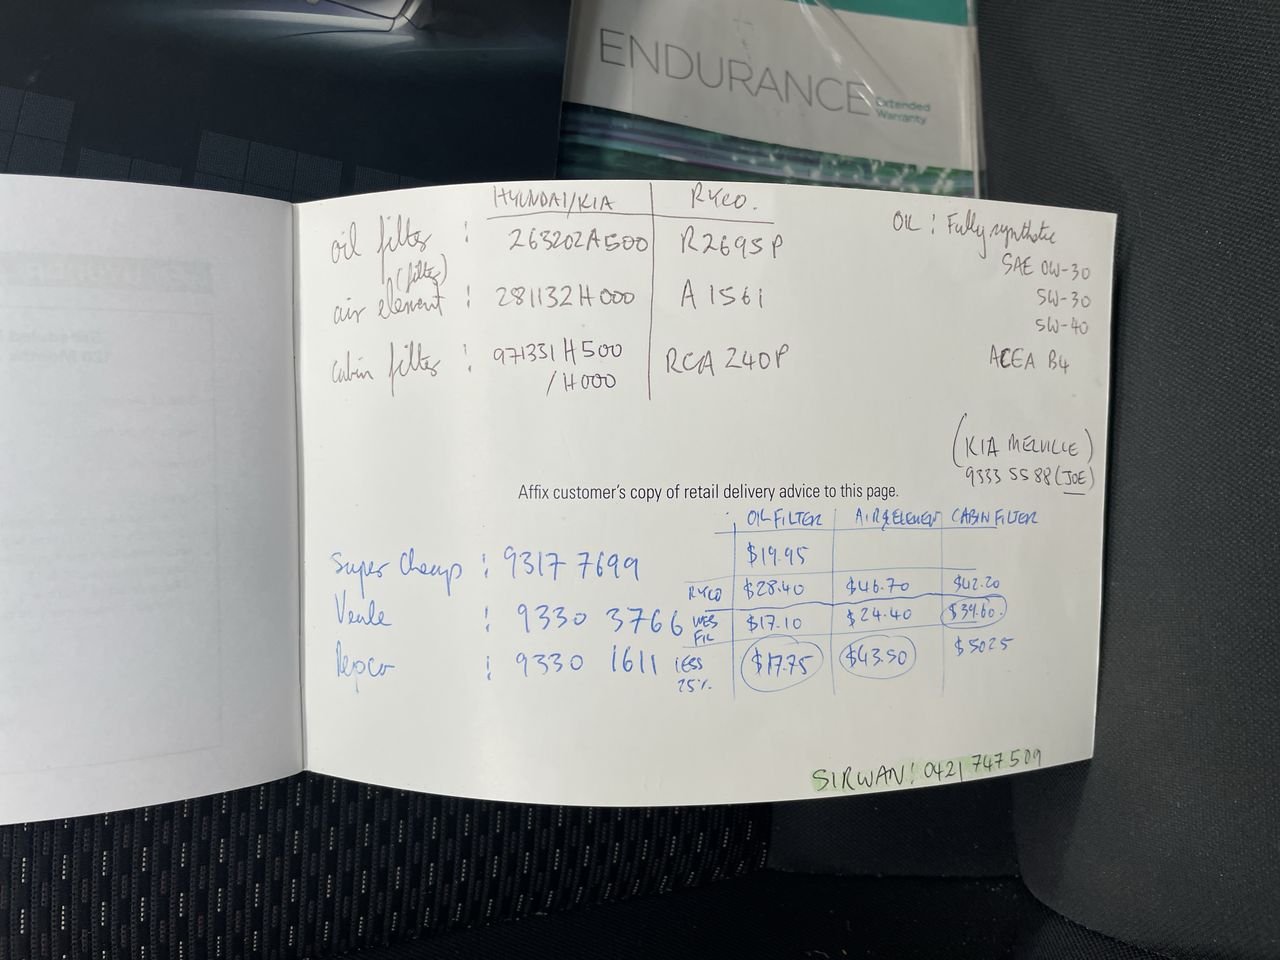 ENDURANCE
Extended
Warranty
HYUNDAI/KIA RYCO.
oil filter : 263202A500 R2695P
(filter)
air element : 281132H000 A1561
cabin filter : 971331H500 RCA 240P
/H000
OIL : Fully synthetic
SAE 0W-30
5W-30
5W-40
ACEA B4
(KIA MELVILLE)
9333 5588 (JOE)
Affix customer's copy of retail delivery advice to this page.
OIL FILTER AIR ELEMENT CABIN FILTER
Super Cheap : 9317 7699 $19.95
RYCO $28.40 $46.70 $42.20
: 9330 3766 WES FIL $17.10 $24.40 $39.60.
Repco : 9330 1611 LESS 25% $17.75 $43.50 $50.25
SIRWAN: 0421 747 509